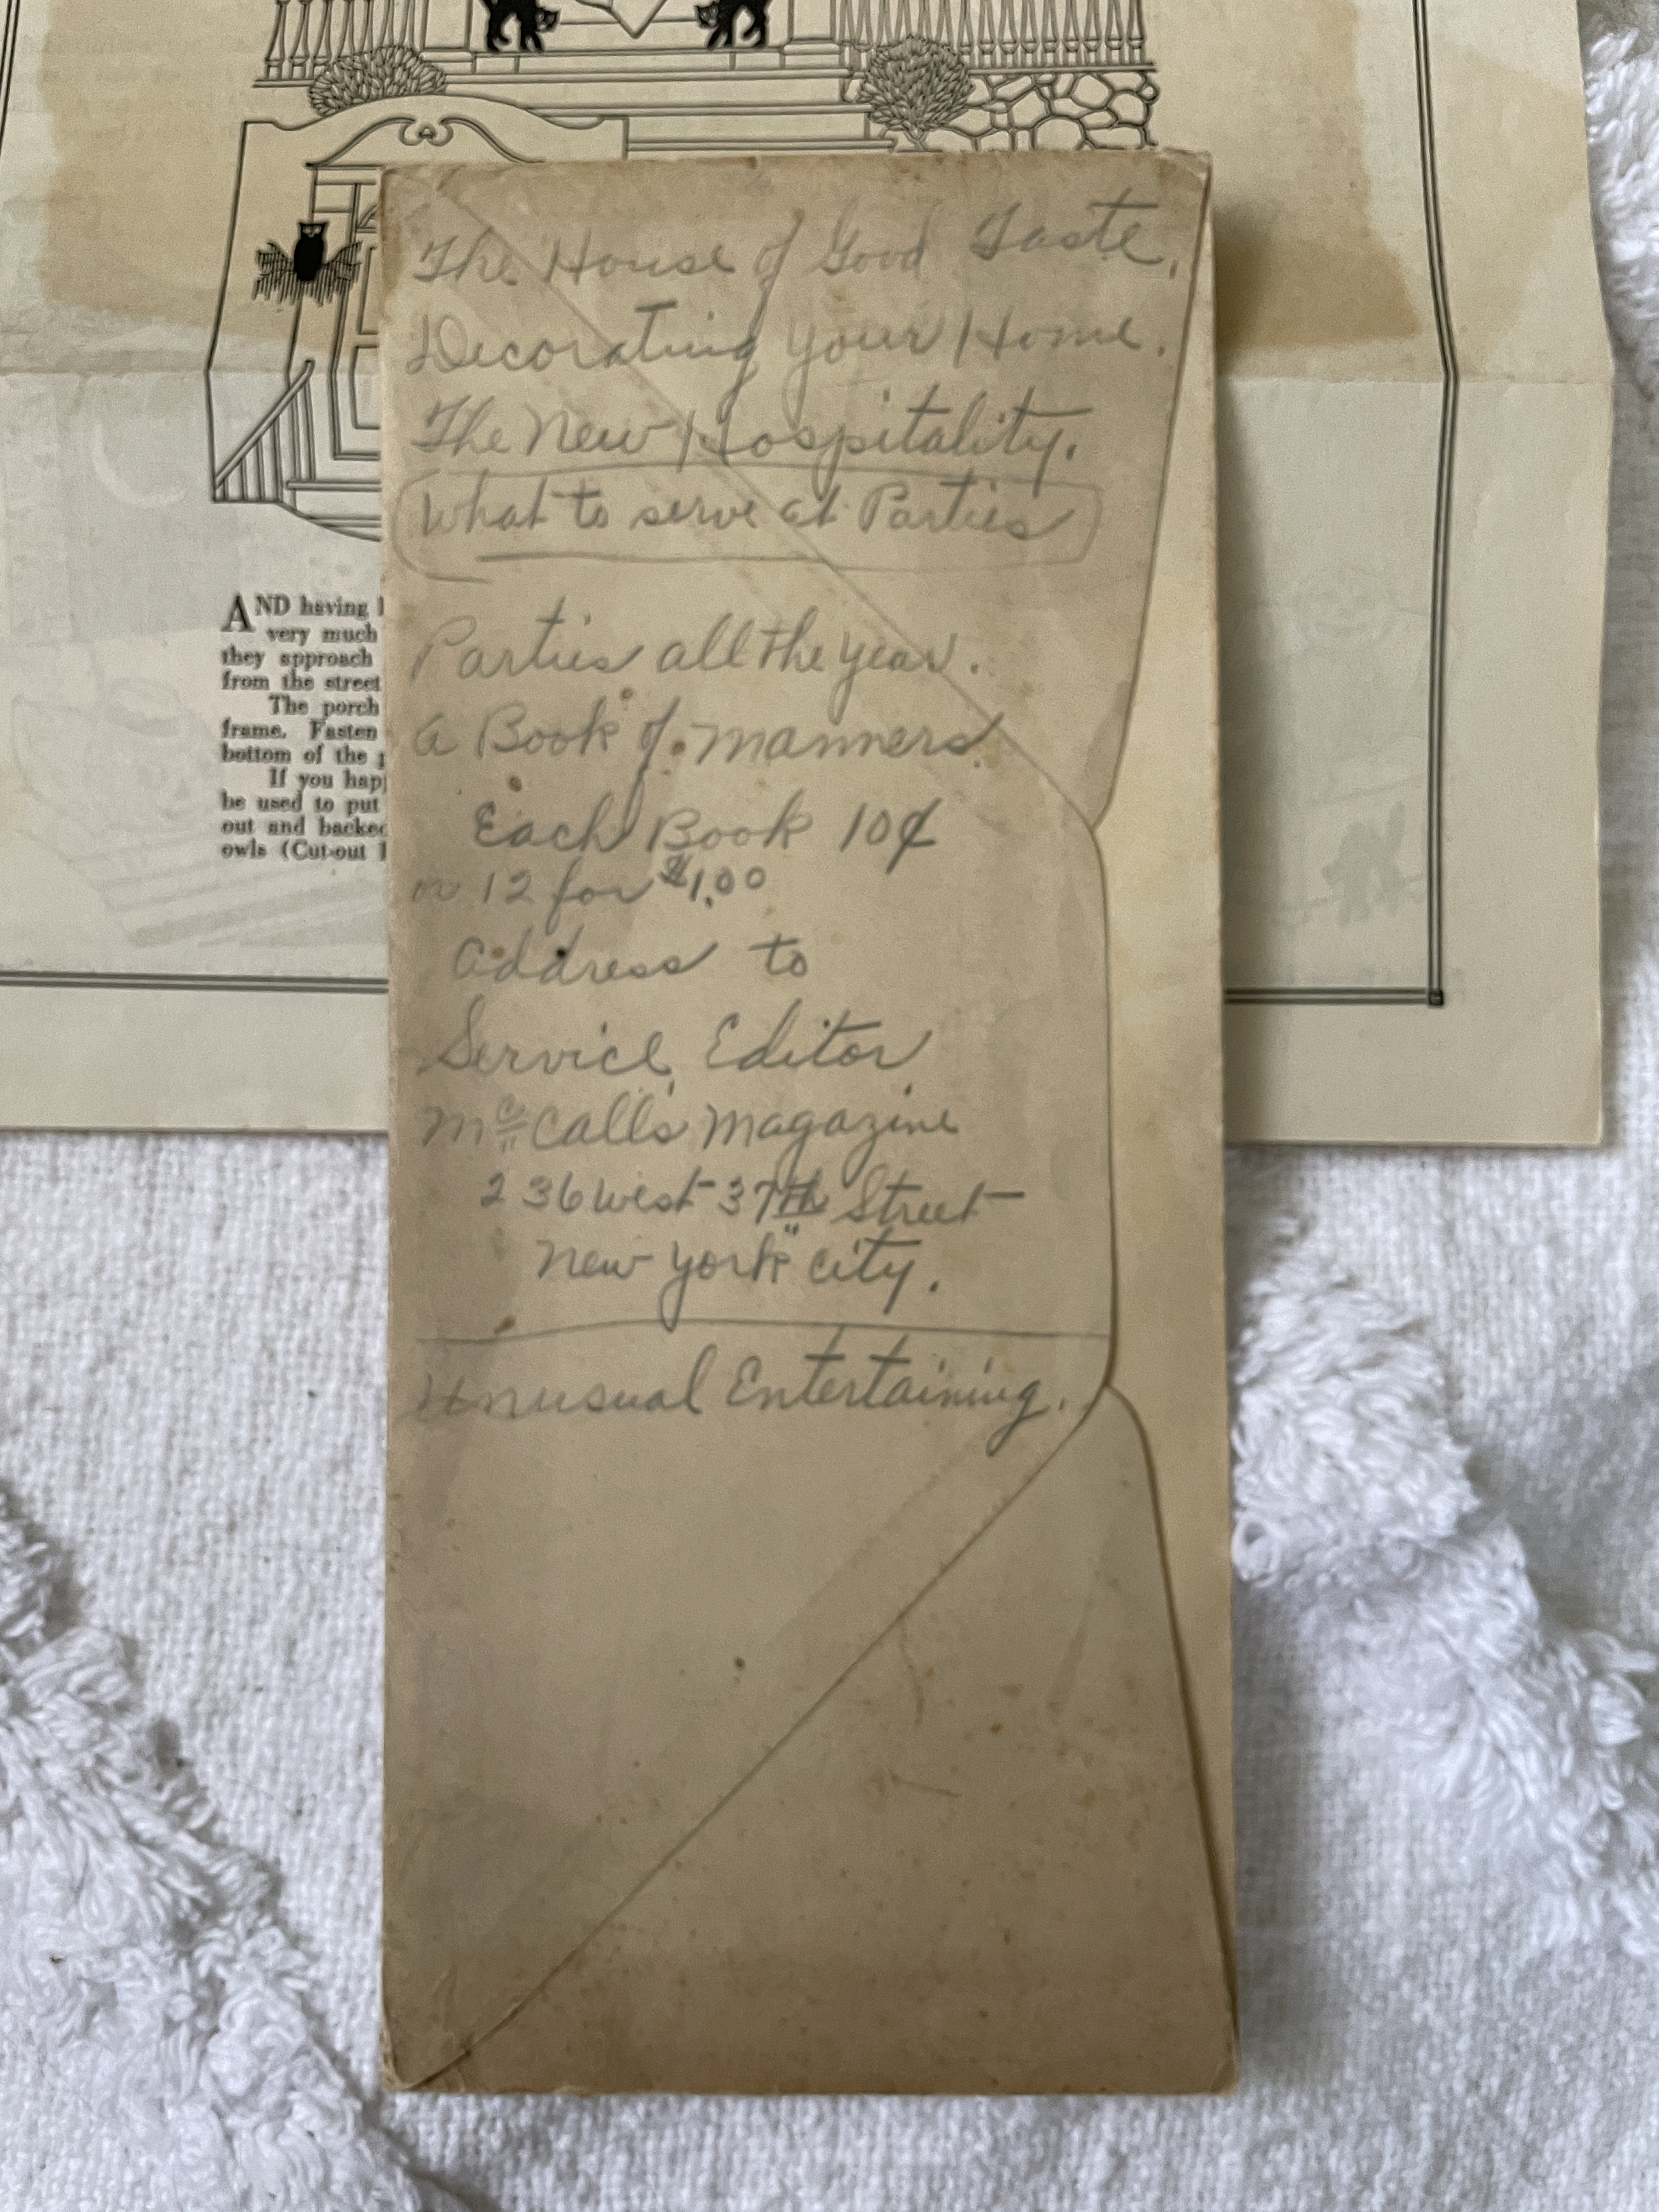 The House of Good Taste,
Decorating your Home.
The New Hospitality.
What to serve at Parties
Parties all the year.
a Book of manners.
Each Book 10¢
or 12 for $1.00
address to
Service Editor
McCall's magazine
236 west 37th Street
new york city.
Unusual Entertaining.
AND having
very much
they approach
from the street
The porch
frame. Fasten
bottom of the
If you
be used to put
out and backed
owls (Cut-out